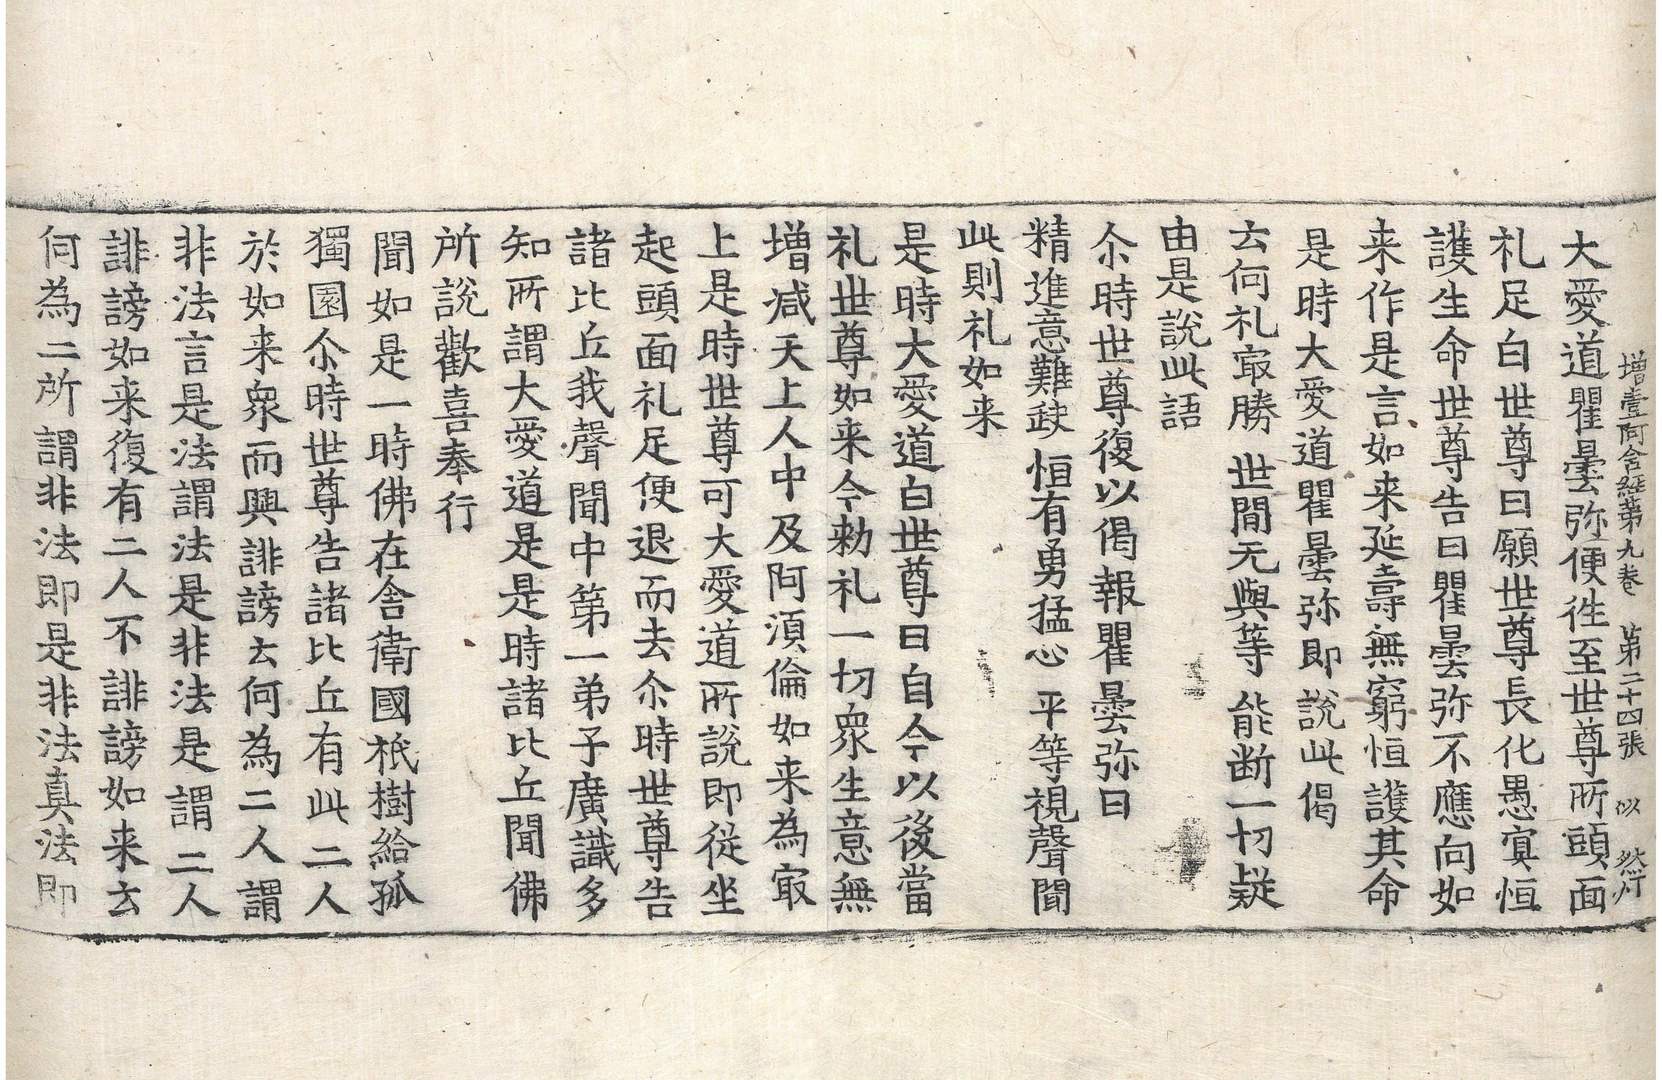 增壹阿含經第九卷 第二十四張 似
大愛道瞿曇弥便徃至世尊所頭面
礼足白世尊曰願世尊長化愚冥恒
護生命世尊告曰瞿曇弥不應向如
来作是言如来延壽無窮恒護其命
是時大愛道瞿曇弥即說此偈
云何礼㝡勝 世間无與等 能断一切疑
由是說此語
尒時世尊復以偈報瞿曇弥曰
精進意難䤼 恒有勇猛心 平等視聲聞
此則礼如来
是時大愛道白世尊曰自今以後當
礼世尊如来今勑礼一切衆生意無
增减天上人中及阿湏倫如来為㝡
上是時世尊可大愛道所說即從坐
起頭面礼足便退而去尒時世尊告
諸比丘我聲聞中第一弟子廣識多
知所謂大愛道是是時諸比丘聞佛
所說歡喜奉行
聞如是一時佛在舍衛國祇樹給孤
獨園尒時世尊告諸比丘有此二人
於如来衆而興誹謗云何為二人謂
非法言是法謂法是非法是謂二人
誹謗如来復有二人不誹謗如来云
何為二所謂非法即是非法真法即